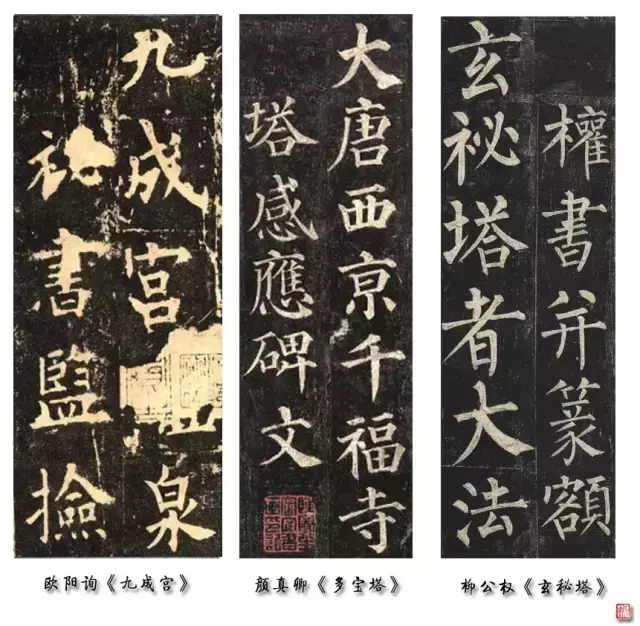 九成宮泉
書監撿
大唐西亰千福寺
塔感應碑文
權書并篆額
玄祕塔者大法
欧阳询《九成宫》
颜真卿《多宝塔》
柳公权《玄秘塔》